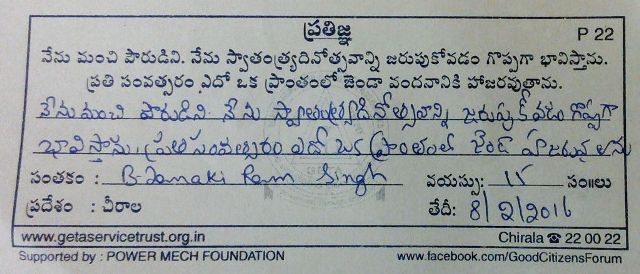 ప్రతిజ్ఞ P 22
నేను మంచి పౌరుడిని. నేను స్వాతంత్ర్యదినోత్సవాన్ని జరుపుకోవడం గొప్పగా భావిస్తాను.
ప్రతి సంవత్సరం ఏదో ఒక ప్రాంతంలో జెండా వందనానికి హాజరవుతాను.
నేను మంచి పౌరుడిని. నేను స్వాతంత్ర్యదినోత్సవాన్ని జరుపుకోవడం గొప్పగా
భావిస్తాను. ప్రతి సంవత్సరం ఏదో ఒక ప్రాంతంలో జెండా
సంతకం : B. Janaki Ram Singh వయస్సు: 15 సం॥లు
ప్రదేశం : చీరాల తేదీ: 8/2/2016
www.getaservicetrust.org.in Chirala ☎ 22 00 22
Supported by : POWER MECH FOUNDATION www.facebook.com/GoodCitizensForum